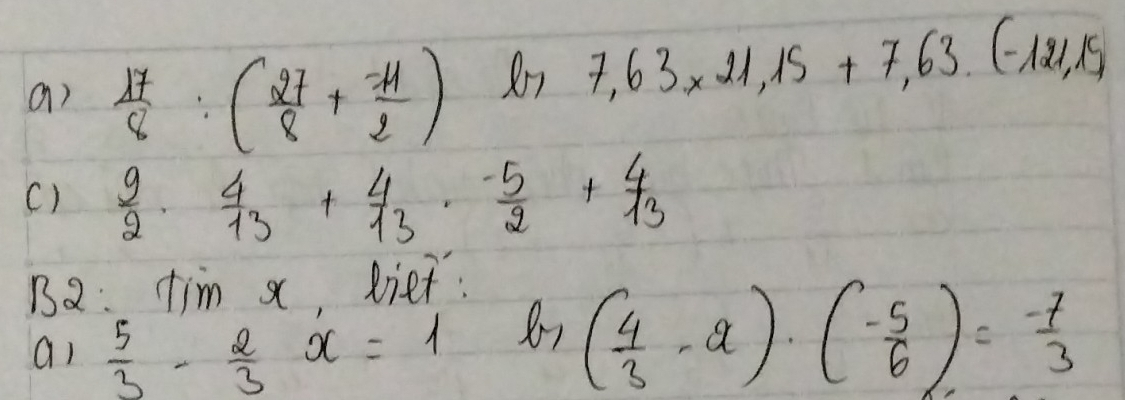 a) 17/8 : (27/8 + -11/2) b) 7,63 x 21,15 + 7,63 . (-121,15)
c) 9/2 . 4/13 + 4/13 . -5/2 + 4/13
B2: Tìm x, biết:
a) 5/3 - 2/3 x = 1 b) (4/3 - x) . (-5/6) = -7/3